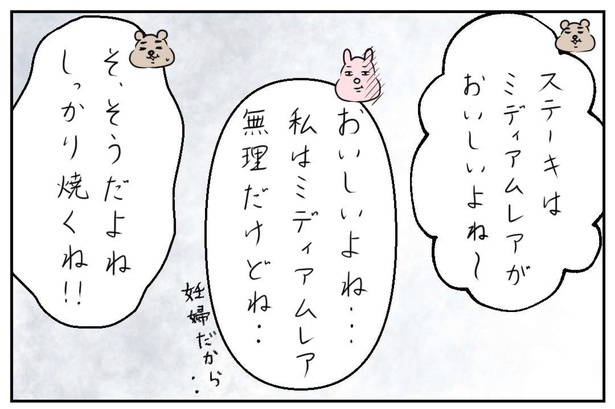 ステーキは
ミディアムレアが
おいしいよね〜
おいしいよね・・・
私はミディアムレア
無理だけどね・・
妊婦だから・・
そ、そうだよね
しっかり焼くね!!